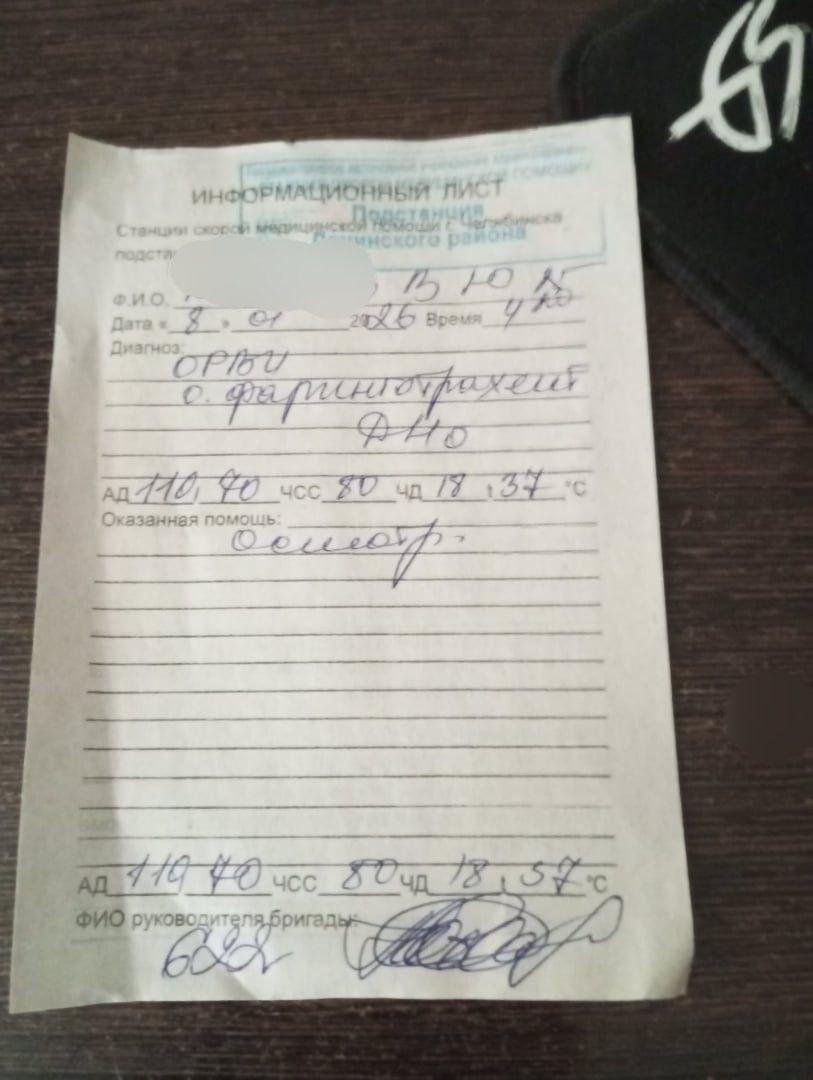 ИНФОРМАЦИОННЫЙ ЛИСТ
Подстанция
Станции скорой медицинской помощи г. Челябинска
Ленинского района
подста
Ф.И.О. В Ю
Дата « 8 » 01 2026 Время 4
Диагноз:
ОРВИ
о. фарингotрахеит
ДН0
АД 110, 70 ЧСС 80 ЧД 18 t 37 °С
Оказанная помощь:
Осмотр.
АД 110 70 ЧСС 80 ЧД 18 t 37 °С
ФИО руководителя бригады:
622